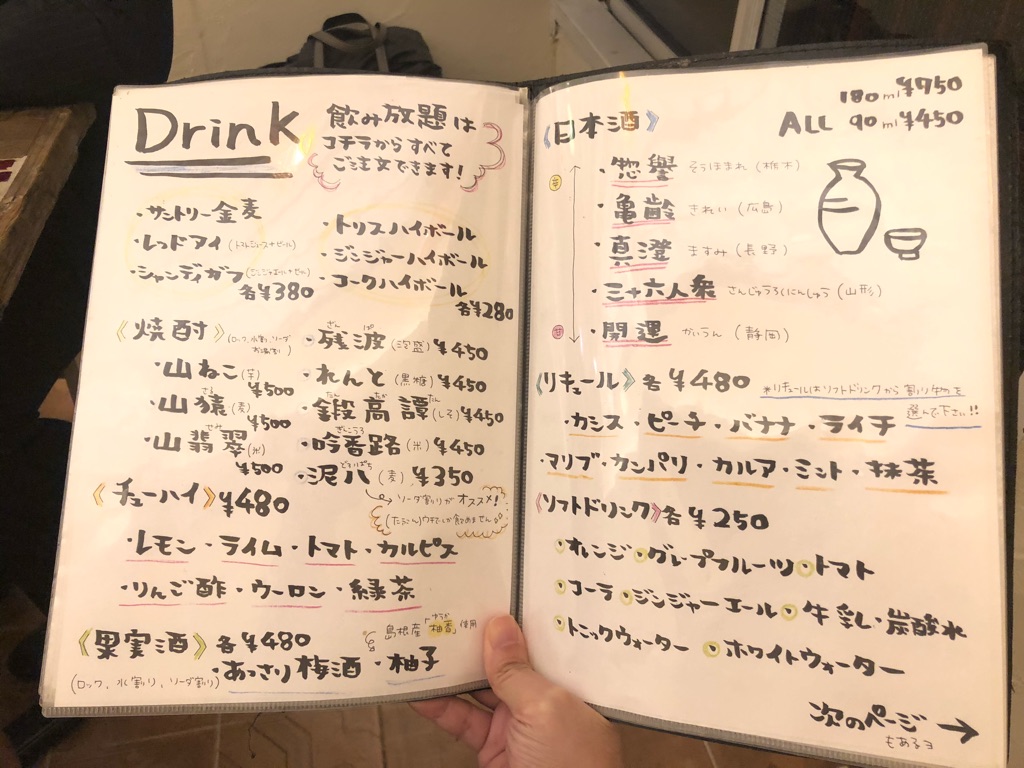 Drink
飲み放題は
コチラからすべて
ご注文できます!
・サントリー金麦
・レッドアイ(トマトジュース+ビール)
・シャンディガフ(ジンジャーエール+ビール)
各¥380
・トリスハイボール
・ジンジャーハイボール
・コークハイボール
各¥280
《焼酎》(ロック、水割、ソーダ
お湯割)
・山ねこ(芋)
¥500
・山猿(麦)
¥500
・山翡翠(米)
¥500
・残波(泡盛)¥450
・れんと(黒糖)¥450
・鍛高譚(しそ)¥450
・吟香路(米)¥450
・泥八(麦)¥350
ソーダ割りがオススメ!
《チューハイ》¥480
・レモン・ライム・トマト・カルピス
・りんご酢・ウーロン・緑茶
《果実酒》各¥480
(ロック、水割り、ソーダ割り)
島根産「柚香」使用
・あっさり梅酒・柚子
《日本酒》
180ml ¥950
ALL 90ml ¥450
辛
・惣譽 そうほまれ(栃木)
・亀齢 きれい(広島)
・真澄 ますみ(長野)
・三十六人衆 さんじゅうろくにんしゅう(山形)
・開運 かいうん(静岡)
甘
《リキュール》各¥480
*リキュールはソフトドリンクから割り物を
選んで下さい!!
・カシス・ピーチ・バナナ・ライチ
・マリブ・カンパリ・カルア・ミント・抹茶
《ソフトドリンク》各¥250
・オレンジ・グレープフルーツ・トマト
・コーラ・ジンジャーエール・牛乳・炭酸水
・トニックウォーター・ホワイトウォーター
次のページ→
もあるヨ